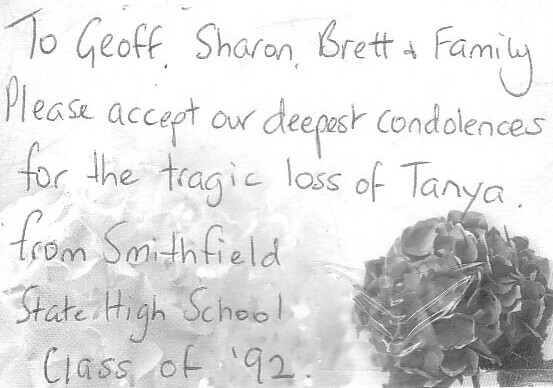 To Geoff, Sharon, Brett & Family
Please accept our deepest condolences
for the tragic loss of Tanya.
from Smithfield
State High School
Class of '92.